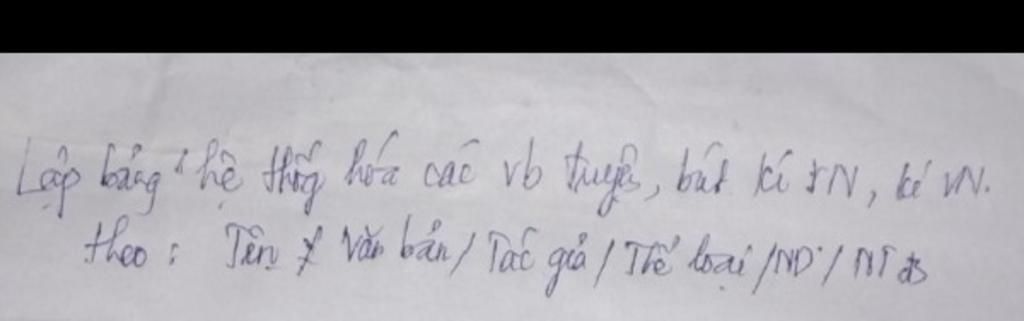 Lập bảng hệ thống hóa các vb truyện, bút kí VN, kí VN.
theo: Tên Văn bản / Tác giả / Thể loại / ND / NT